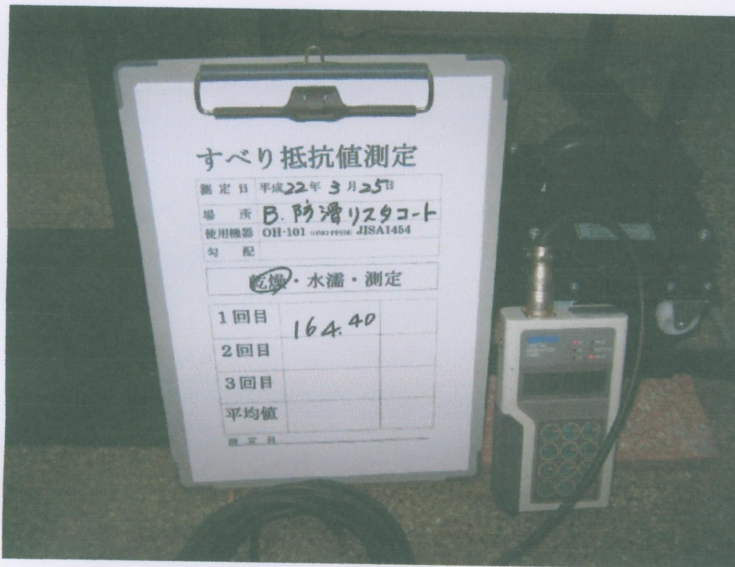 すべり抵抗値測定
測定日 平成22年3月25日
場所 B.防滑リスタコート
使用機器 OH-101 JISA1454
勾配
乾燥・水濡・測定
1回目 164.40
2回目
3回目
平均値
測定員